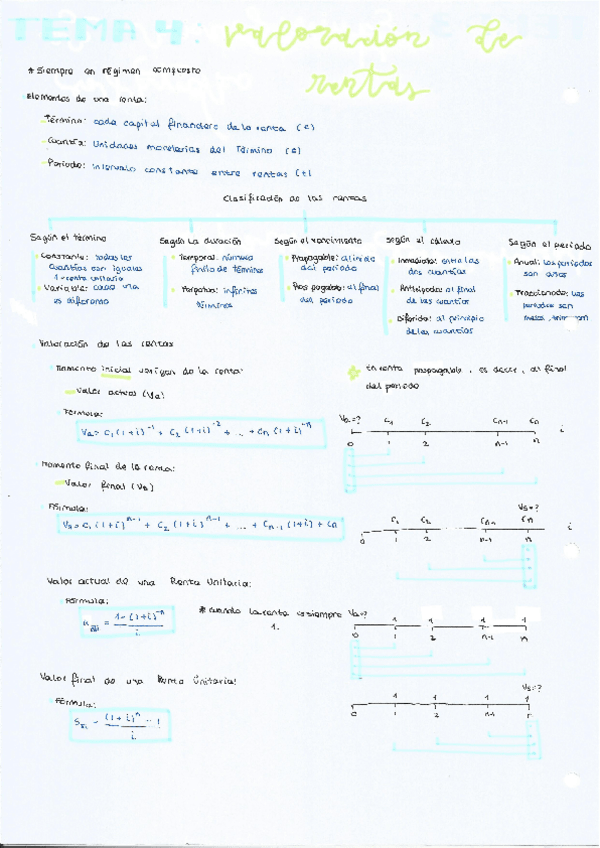 TEMA 4: valoración de
rentas
* Siempre en régimen compuesto
Elementos de una renta:
- Término: cada capital financiero de la renta (c)
- Cuantía: Unidades monetarias del Término (€)
- Período: intervalo constante entre rentas (t)
Clasificación de las rentas
Según el término
• Constante: todas las
cuantías son iguales
1 = renta unitaria
• Variable: cada una
es diferente
Según la duración
• Temporal: número
finito de términos
• Perpetua: infinitos
términos
Según el vencimiento
• Prepagable: al inicio
del período
• Pos pagable: al final
del período
según el cálculo
• Inmediata: entra las
dos cuantías
• Anticipada: al final
de las cuantías
• Diferida: al principio
de las cuantías
Según el período
• Anual: los períodos
son años
• Fraccionada: los
períodos son
Valoración de las rentas
Momento inicial u origen de la renta:
- Valor actual (Va)
- Fórmula:
Va = C₁ (1+i)⁻¹ + C₂ (1+i)⁻² + ... + Cn (1+i)⁻ⁿ
En renta pospagable, es decir, al final
del período
Va=? C₁ C₂ Cn-1 Cn
0 1 2 n-1 n i
Momento final de la renta:
- Valor final (Vs)
• Fórmula:
Vs = C₁ (1+i)ⁿ⁻¹ + C₂ (1+i)ⁿ⁻¹ + ... + Cn-1 (1+i) + Cn
Vs=?
C₁ C₂ Cn-1 Cn i
0 1 2 n-1 n
Valor actual de una Renta Unitaria:
- Fórmula:
a n̅|i = 1-(1+i)⁻ⁿ / i
* cuando la renta es siempre
1.
Va=? 1 1 1 1
0 1 2 n-1 n
Valor final de una Renta Unitaria:
- Fórmula:
S n̅|i = (1+i)ⁿ - 1 / i
Vs=?
1 1 1 1
0 1 2 n-1 n